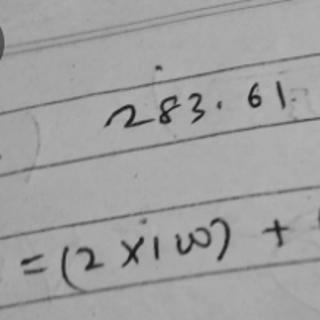 283.61
=(2×100) +